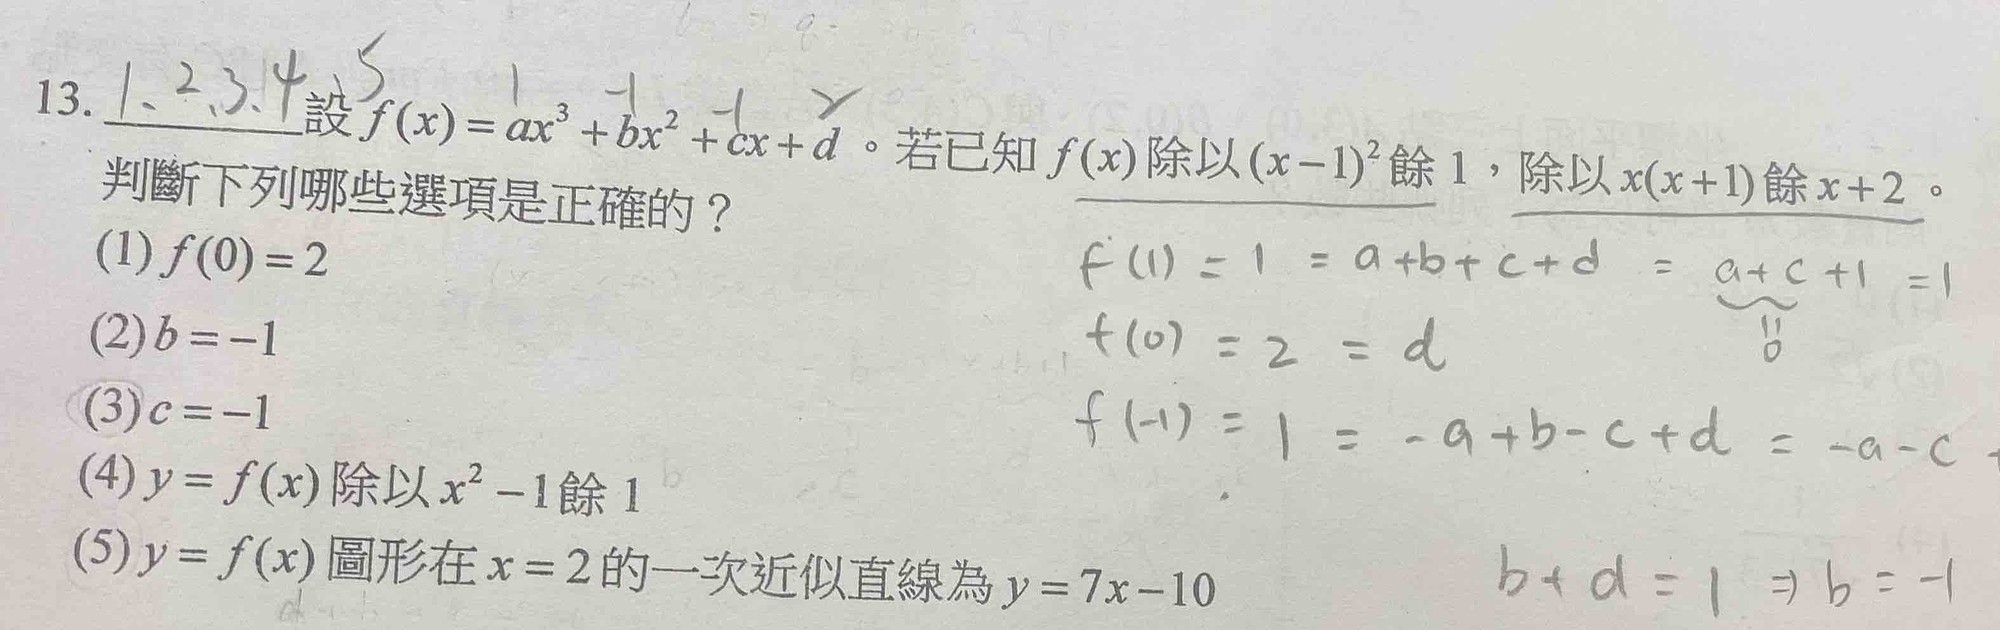 13. 1、2、3、4、5 設 f(x) = ax³ + bx² + cx + d。若已知 f(x) 除以 (x−1)² 餘 1，除以 x(x+1) 餘 x+2。
1 −1 −1 2
判斷下列哪些選項是正確的？
(1) f(0) = 2
(2) b = −1
(3) c = −1
(4) y = f(x) 除以 x² − 1 餘 1
(5) y = f(x) 圖形在 x = 2 的一次近似直線為 y = 7x − 10
f(1) = 1 = a+b+c+d = a+c+1 = 1
0
f(0) = 2 = d
f(-1) = 1 = -a+b-c+d = -a-c
b+d = 1 ⇒ b = -1